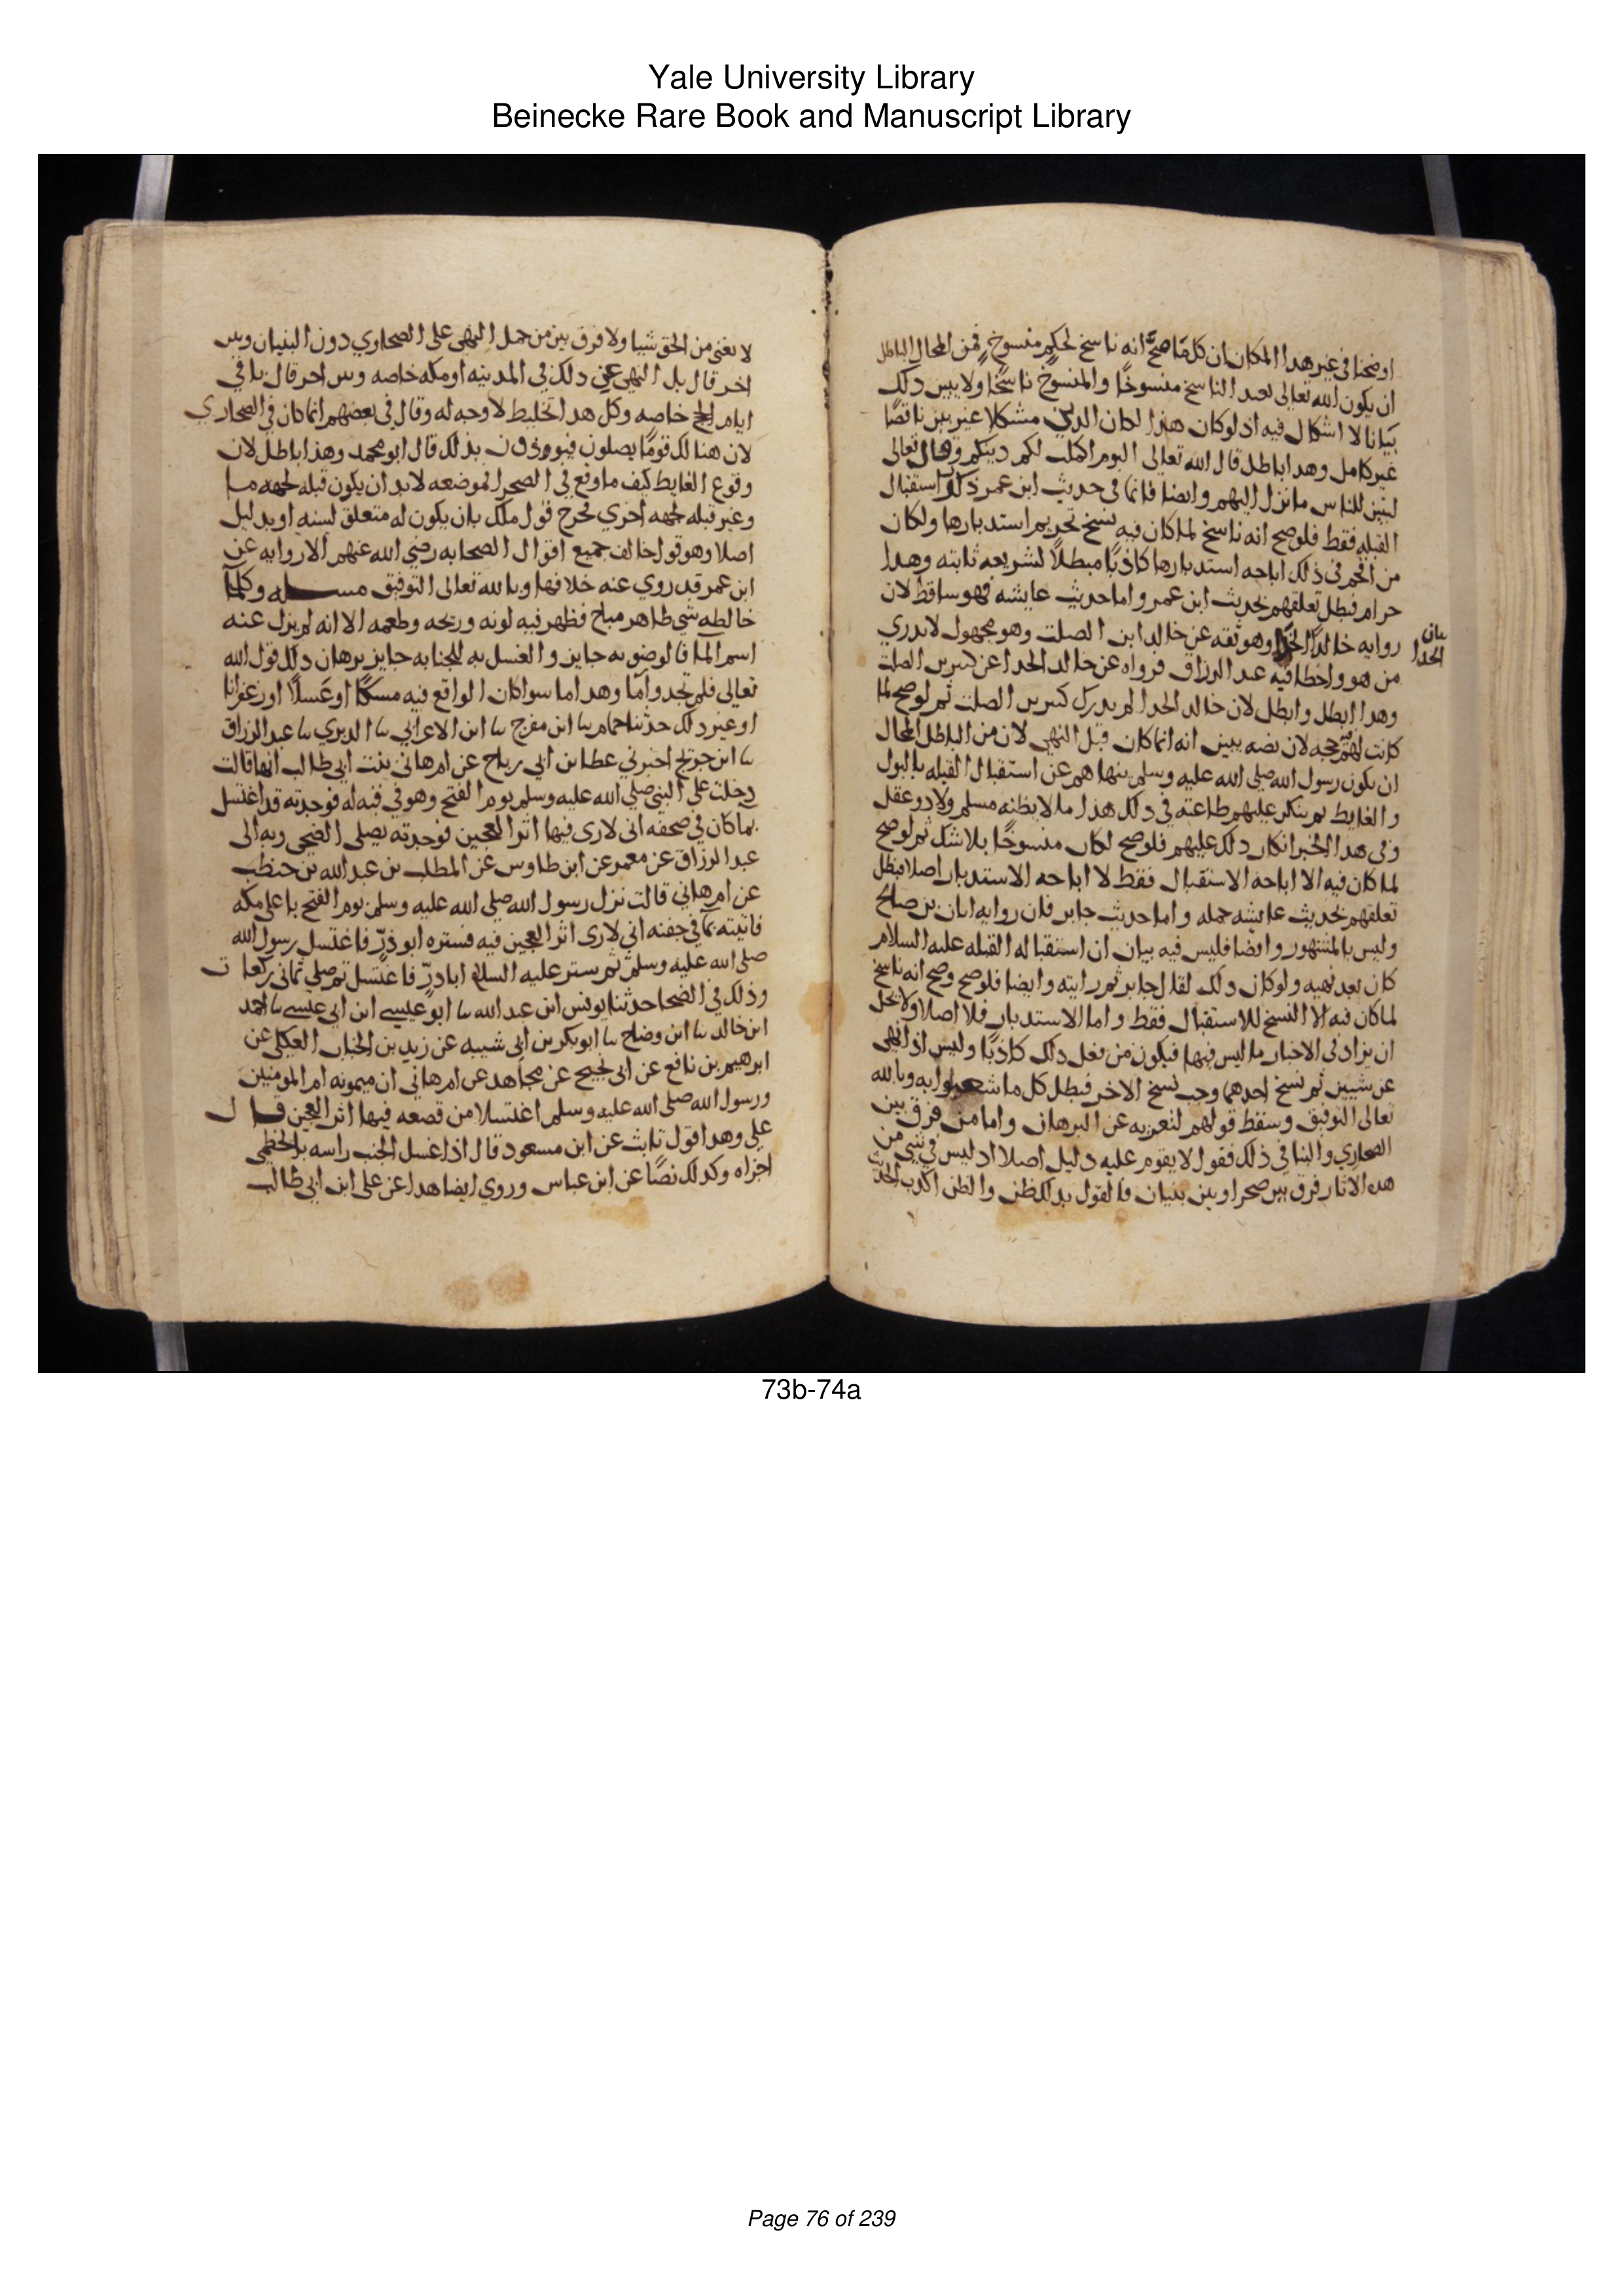 Yale University Library
Beinecke Rare Book and Manuscript Library
اوضحنا في غير هدا المكان ان كل ما صح انه ناسخ لحكم منسوخ فمن المحال الباطل
ان يكون الله تعالى بعيد الناسخ منسوخًا والمنسوخ ناسخًا ولا يبين دلك
بيانا لا اشكال فيه اد لو كان هذا لكان الدين مشكلا غير بين ناقصًا
غير كامل وهدا باطل قال الله تعالى اليوم اكملت لكم دينكم وقال تعالى
لتبين للناس ما نزل اليهم وايضا فانما في حديث ابن عمر ذكر استقبال
القبله فقط فلو صح انه ناسخ لما كان فيه نسخ تحريم استدبارها ولكان
من اقحم في ذلك اباحه استدبارها كاذبًا مبطلًا لشريعه ثابته وهدا
حرام فبطل تعلقهم بحديث ابن عمر واما حديث عايشه فهو ساقط لان
روايه خالد الحدا وهو ثقه عن خالد ابن الصلت وهو مجهول لا يدري
بيان
الحدا
من هو واخطا فيه عبد الرزاق فرواه عن خالد الحدا عن كثير بن الصلت
وهدا ابطل وابطل لان خالد الحدا لم يدرك كثير بن الصلت ثم لو صح لما
كانت لهم حجه لان نصه يبين انه انما كان قبل النهي لان من الباطل المحال
ان يكون رسول الله صلى الله عليه وسلم ينهاهم عن استقبال القبله بالبول
والغايط ثم ينكر عليهم طاعته في دلك هذا ما لا يظنه مسلم ولا دو عقل
وفي هدا الخبر انكار دلك عليهم فلو صح لكان منسوخًا بلا شك ثم لو صح
لما كان فيه الا اباحه الاستقبال فقط لا اباحه الاستدبار اصلا فبطل
تعلقهم بحديث عايشه جمله واما حديث جابر فان روايه ابان بن صالح
وليس بالمشهور وايضا فليس فيه بيان ان استقباله القبله عليه السلام
كان بعد نهيه ولو كان دلك لقال جابر ثم رايته وايضا فلو صح وصح انه ناسخ
لما كان فيه الا النسخ للاستقبال فقط واما الاستدبار فلا اصلا ولا يحل
ان يزاد في الاخبار ما ليس فيها فيكون من فعل دلك كاذبًا وليس اذا نهي
عن شيين ثم نسخ احدهما وجب نسخ الاخر فبطل كل ما شغبوا به وبالله
تعالى التوفيق وسقط قولهم لتعريه عن البرهان واما من فرق بين
الصحاري والبنا في ذلك فقول لا يقوم عليه دليل اصلا اد ليس في شي من
هده الاثار فرق بين صحرا وبين بنيان فالقول بدلك ظن والظن اكدب الحديث
لا يغني من الحق شيا ولا فرق بين من حمل النهي على الصحاري دون البنيان وبين
اخر قال بل النهي عن دلك في المدينه او مكه خاصه وبين اخر قال بل في
ايام الحج خاصه وكل هدا تخليط لا وجه له وقال في بعضهم انما كان في الصحاري
لان هنالك قومًا يصلون فيوذون بدلك قال ابو محمد وهذا باطل لان
وقوع الغايط كيف ما وقع في الصحرا فموضعه لا بد ان يكون قبله لجهه ما
وغير قبله لجهه اخري فخرج قول ملك بان يكون له متعلق بسنه او بدليل
اصلا وهو قول خالف جميع اقوال الصحابه رضي الله عنهم الا روايه عن
ابن عمر قد روي عنه خلافها وبالله تعالى التوفيق مسـله وكل ما
خالطه شي طاهر مباح فظهر فيه لونه وريحه وطعمه الا انه لم يزل عنه
اسم الما فالوضو به جايز والغسل به للجنابه جايز برهان دلك قول الله
تعالى فلم تجدوا ما وهدا ما سوا كان الواقع فيه مسكًا او عسلًا او زعفرانا
او غير دلك حدثنا حمام نا ابن مفرج نا ابن الاعرابي نا الدبري نا عبد الرزاق
نا ابن جريج اخبرني عطا بن ابي رباح عن ام هاني بنت ابي طالب انها قالت
دخلت على النبي صلي الله عليه وسلم يوم الفتح وهو في قبه له فوجدته قد اغتسل
بما كان في صحفه اني لاري فيها اثر العجين فوجدته يصلي الضحى وبه الى
عبد الرزاق عن معمر عن ابن طاوس عن المطلب بن عبد الله بن حنطب
عن ام هاني قالت نزل رسول الله صلى الله عليه وسلم يوم الفتح باعلى مكه
فاتيته بما في جفنه اني لارى اثر العجين فيه فستره ابو ذر فاغتسل رسول الله
صلى الله عليه وسلم ثم ستر عليه السلام ابا درّ فاغتسل ثم صلي ثماني ركعات
وذلك في الضحا حدثنا يونس ابن عبد الله نا ابو عيسى ابن ابي عيسى نا احمد
ابن خالد نا ابن وضاح نا ابو بكر بن ابي شيبه عن زيد بن الحباب العكلي عن
ابرهيم بن نافع عن ابي نجيح عن مجاهد عن ام هاني ان ميمونه ام المومنين
ورسول الله صلى الله عليه وسلم اغتسلا من قصعه فيها اثر العجين قال
علي وهدا قول ثابت عن ابن مسعود قال اذا غسل الجنب راسه بالخطمي
اجزاه وكدلك نصًا عن ابن عباس وروي ايضا هدا عن علي ابن ابي طالب
73b-74a
Page 76 of 239